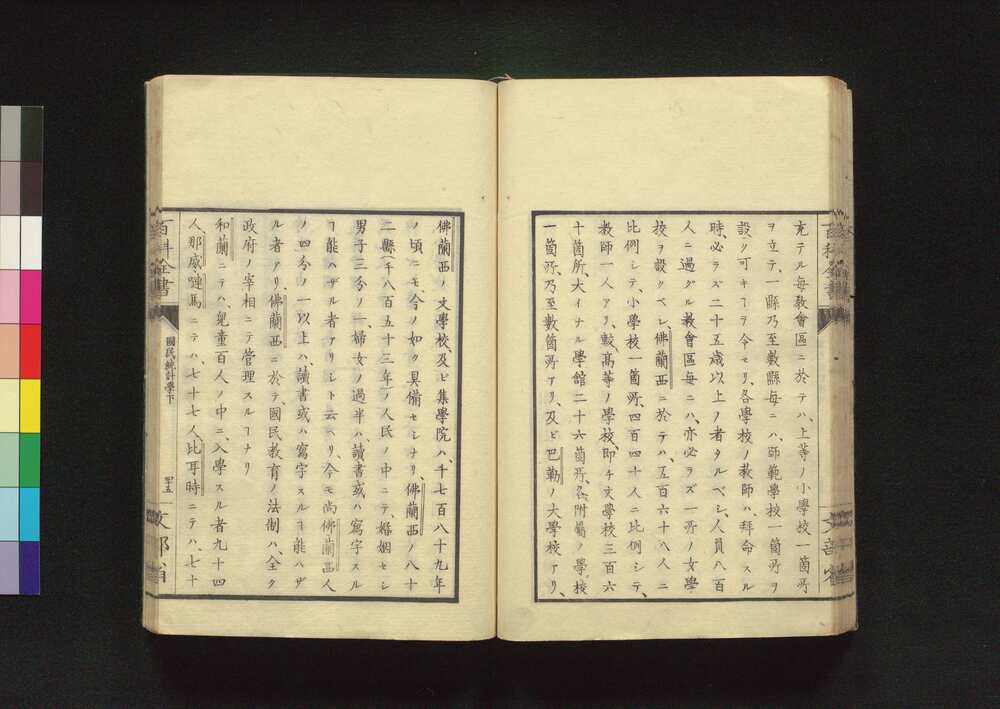 充テル毎教會區ニ於テハ、上等ノ小學校一箇所
ヲ立テ、一縣乃至數縣毎ニハ、師範學校一箇所ヲ
設ク可キヿヲ令セリ、各學校ノ教師ハ、拜命スル
時、必ラズ二十五歳以上ノ者タルベシ、人員八百
人ニ過グル教會區毎ニハ、亦必ラズ一所ノ女學
校ヲ設クベシ、佛蘭西ニ於テハ、五百六十八人ニ
比例シテ、小學校一箇所、四百四十人ニ比例シテ、
教師一人アリ、較高等ノ學校、即チ文學校三百六
十箇所、大イナル學館二十六箇所、各附屬ノ學校
一箇所、乃至數箇所アリ、及ビ巴勒ノ大學校アリ、
佛蘭西ノ文學校、及ビ集學院ハ、千七百八十九年
ノ頃ニモ、今ノ如ク具備セシナリ、佛蘭西ノ八十
二縣(千八百五十三年)ノ人民ノ中ニテ、婚姻セシ
男子三分ノ一、婦女ノ過半ハ、讀書或ハ寫字スル
ヿ能ハザル者アリシト云ヘリ、今モ尚佛蘭西人
ノ四分ノ一以上ハ、讀書或ハ寫字スルヿ能ハザ
ル者アリ、佛蘭西ニ於テ、國民教育ノ法制ハ、全ク
政府ノ宰相ニテ管理スルヿナリ
和蘭ニテハ、兒童百人ノ中ニ、入學スル者九十四
人、那威嗹馬ニテハ、七十七人、比耳時ニテハ、七十
百科全書
國民統計學下
四十五
文部省